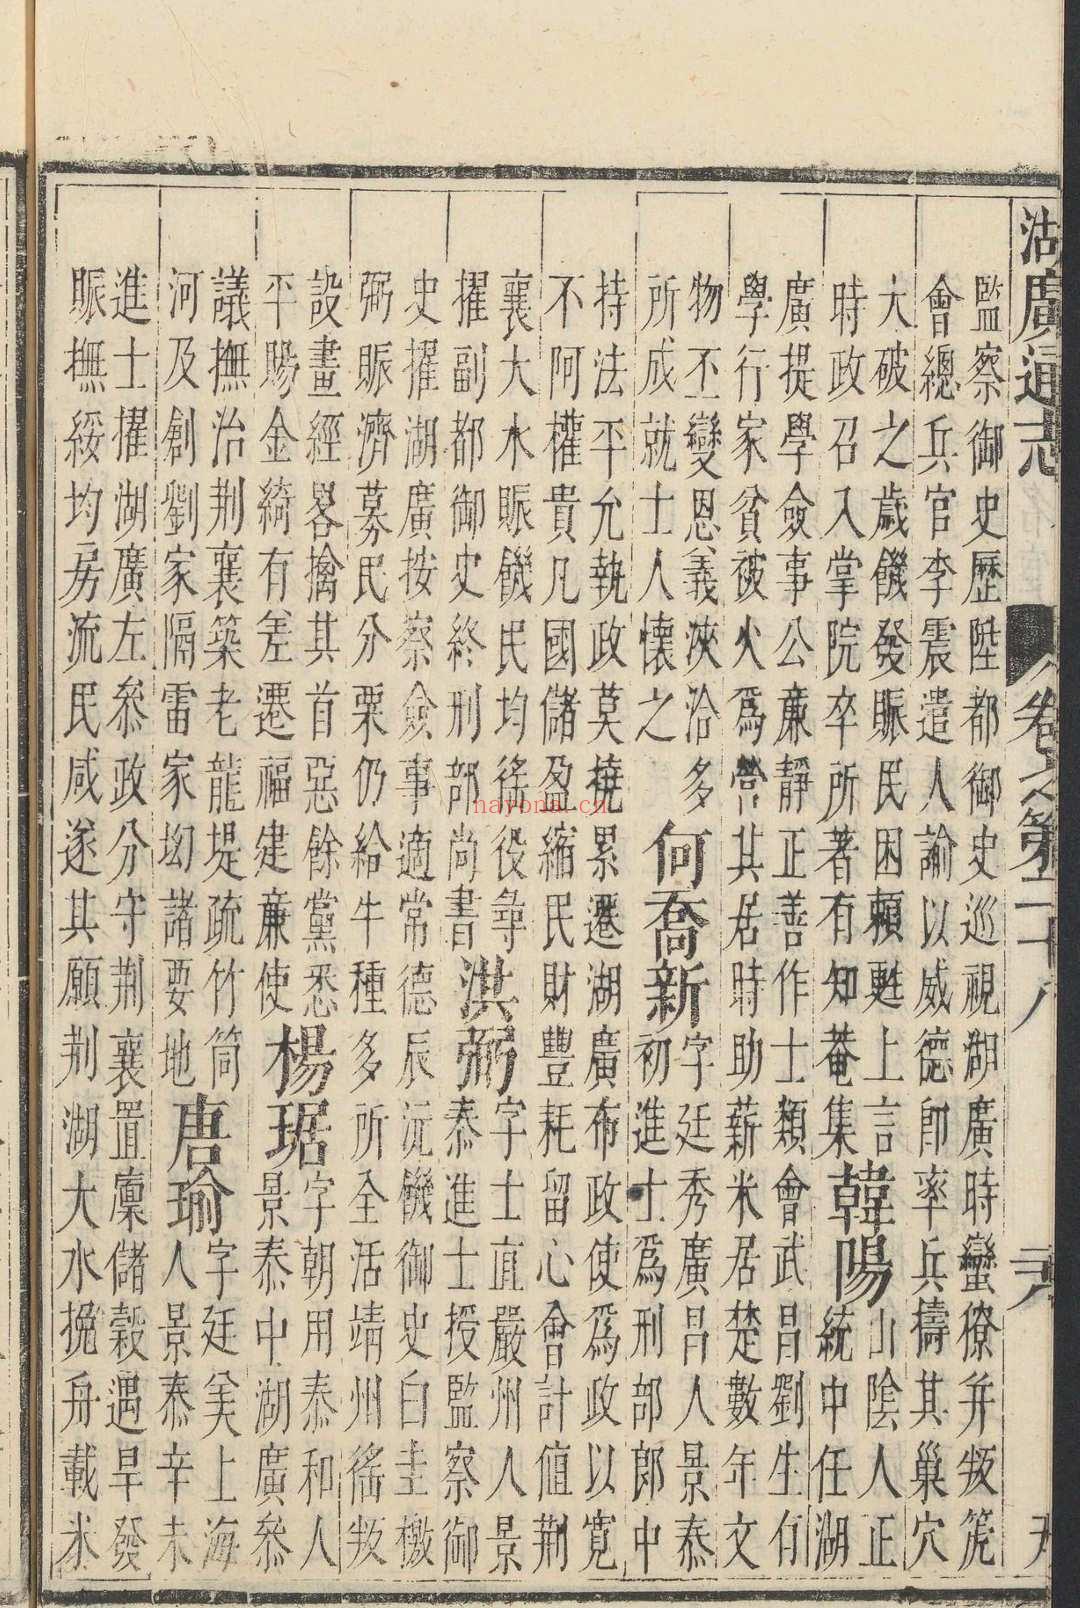 湖廣通志
卷之第二十八
監察御史歷陞都御史巡視湖廣時蠻獠并叛箎
會總兵官李震遣人諭以威德卽率兵擣其巢穴
大破之歲饑發賑民困賴甦上言
時政召入掌院卒所著有知菴集
韓陽
山陰人正
統中任湖
廣提學僉事公廉靜正善作士類會武昌劉生有
學行家貧被火爲營其居時助薪米居楚數年文
物丕變恩義浹洽多
所成就士人懷之
何喬新
字廷秀廣昌人景泰
初進士爲刑部郎中
持法平允執政莫撓累遷湖廣布政使爲政以寬
不阿權貴凡國儲盈縮民財豐耗留心會計值荆
襄大水賑饑民均徭役尋
擢副都御史終刑部尚書
洪弼
字士直嚴州人景
泰進士授監察御
史擢湖廣按察僉事適常德辰沅饑御史白圭檄
弼賑濟募民分粟仍給牛種多所全活靖州徭叛
設畫經畧擒其首惡餘黨悉
平賜金綺有差遷福建廉使
楊琚
字朝用泰和人
景泰中湖廣叅
議撫治荆襄築老龍堤疏竹筒
河及創劉家隔雷家㘭諸要地
唐瑜
字廷美上海
人景泰辛未
進士擢湖廣左叅政分守荆襄置廩儲穀遇旱發
賑撫綏均房流民咸遂其願荆湖大水挽舟載米
nayona.cn